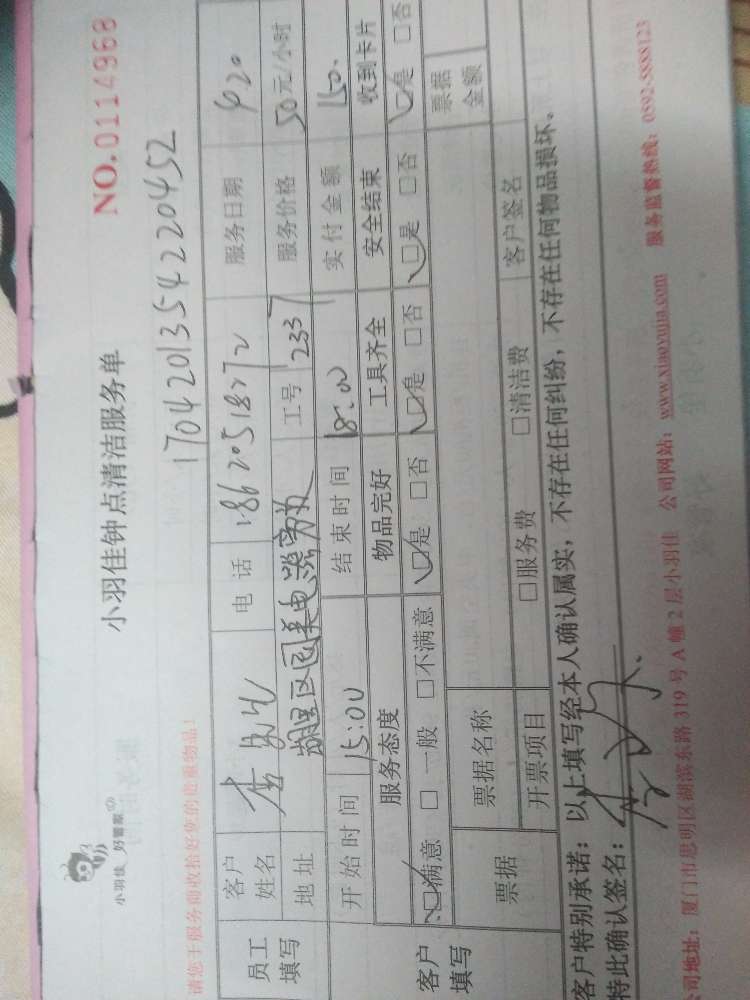 小羽佳 好管家
小羽佳钟点清洁服务单
NO.0114968
1704201354220452
请您于服务前收拾好您的贵重物品!
员工填写 客户姓名 电话 18620518272 服务日期 420
地址 湖里区国美电器 工号 2337 服务价格 50元/小时
客户填写 开始时间 15:00 结束时间 18:00 实付金额 150.
服务态度 物品完好 工具齐全 安全结束 收到卡片
☑满意 □一般 □不满意 ☑是 □否 ☑是 □否 ☑是 □否 ☑是 □否
票据 票据名称 票据金额
开票项目 □服务费 □清洁费 客户签名
客户特别承诺:以上填写经本人确认属实,不存在任何纠纷,不存在任何物品损坏。
特此确认签名:
公司地址:厦门市思明区湖滨东路319号A幢2层小羽佳 公司网站:www.xiaoyujia.com 服务监督热线:0592-5888123